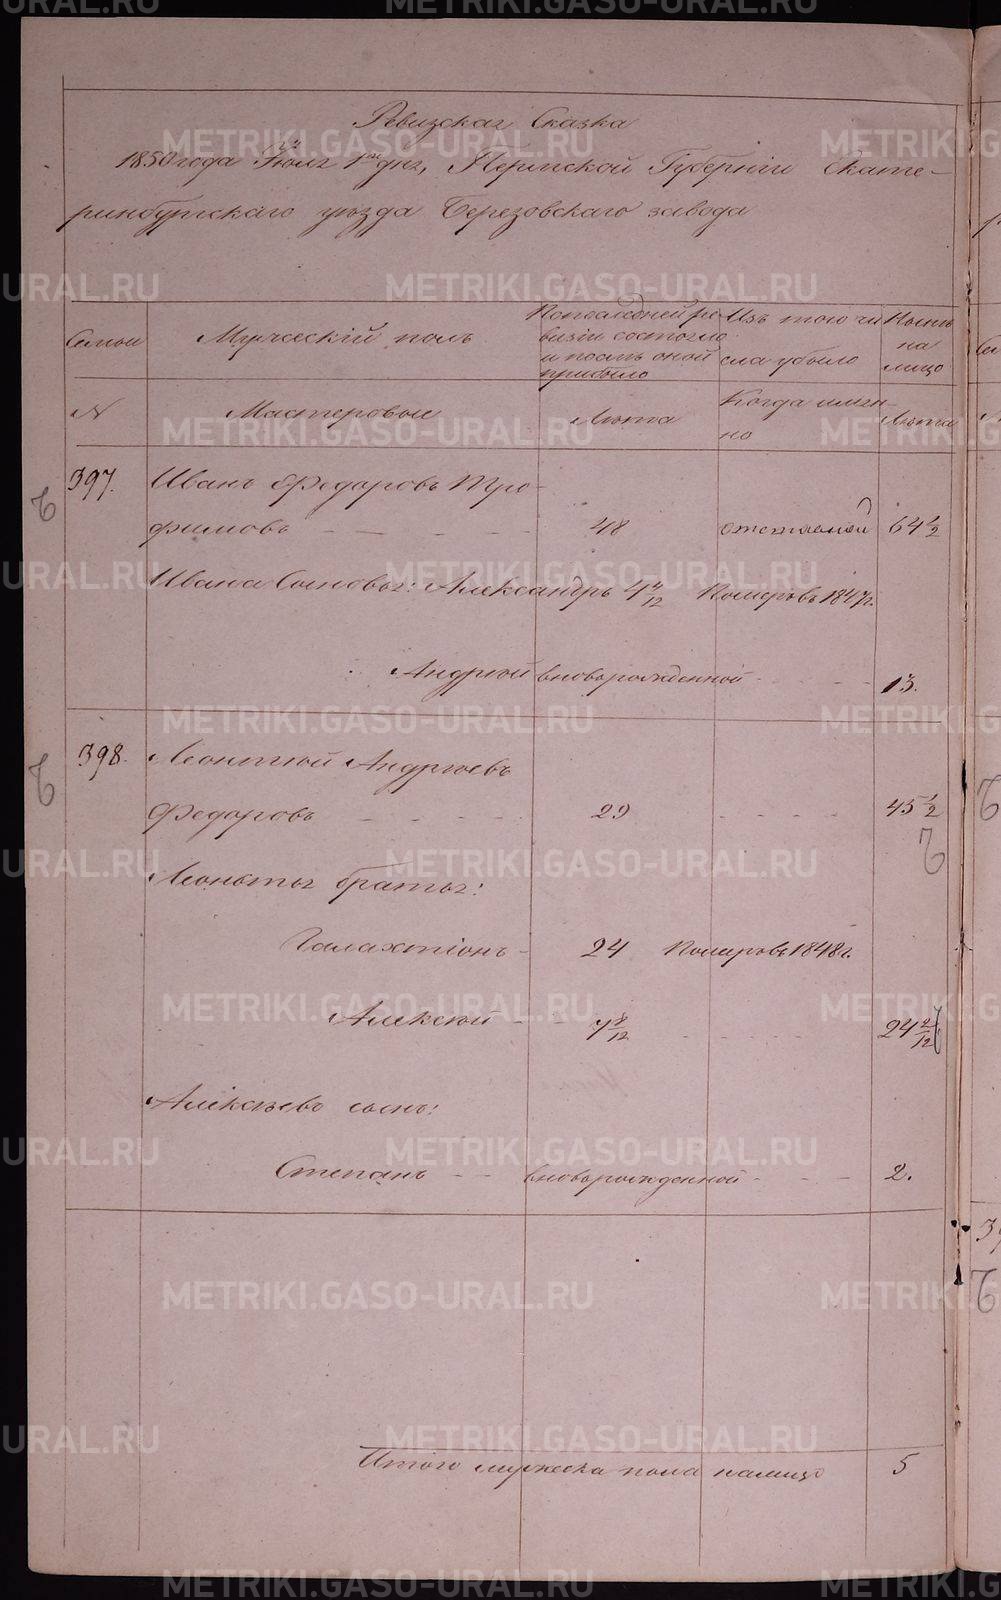 Ревизская Сказка
1850 года Июля 1го дня, Пермской Губернiи Екате-
ринбургскаго уѣзда Березовскаго завода
Семьи
Мужескiй полъ
По последней ре
визiи состояло
и послѣ оной
прибыло
Изъ того чи
сла убыло
Нынѣ
на
лицо
N
Мастеровые
Лѣта
Когда имен-
но
Лѣта
397. Иванъ Федоровъ Тро-
фимовъ 48 отставной 64 1/2
Ивана Сыновья: Александръ 4 4/12 Померъ въ 1847 г.
Андрей вноворожденной 13.
398. Леонтiй Андреевъ
Федоровъ 29 45 1/2
Леонтья братья:
Галахтiонъ 24 Померъ въ 1848 г.
Алексей 7 8/12 24 2/12
Алексѣевъ сынъ:
Степанъ вноворожденной 2.
Итого мужеска пола налицо 5
METRIKI.GASO-URAL.RU